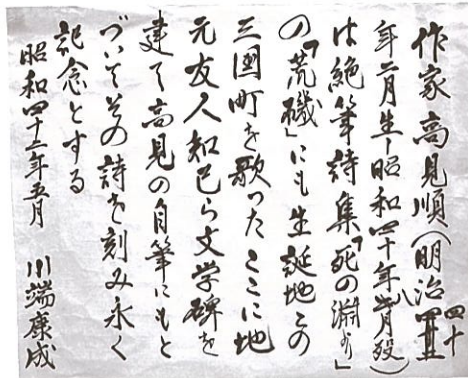 作家 高見順(明治四十
年二月生-昭和四十年八月歿)
は絶筆詩集「死の淵より」
の「荒磯」にも生誕地この
三国町を歌ったここに地
元友人知己ら文学碑を
建て高見の自筆にもと
づいてその詩を刻み永く
記念とする
昭和四十二年五月 川端康成